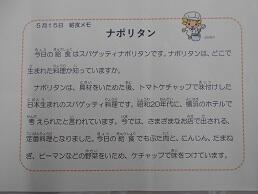 5月15日　給食メモ
ナポリタン
今日の給食はスパゲッティナポリタンです。ナポリタンは、どこで
生まれた料理か知っていますか。
ナポリタンは、具材をいためた後、トマトケチャップで味付けした
日本生まれのスパゲッティ料理です。昭和20年代に、横浜のホテルで
考えられたと言われています。今では、さまざまなお店で出される、
定番料理となりました。今日の給食でもぶた肉と、にんじん、たまね
ぎ、ピーマンなどの野菜をいため、ケチャップで味をつけています。